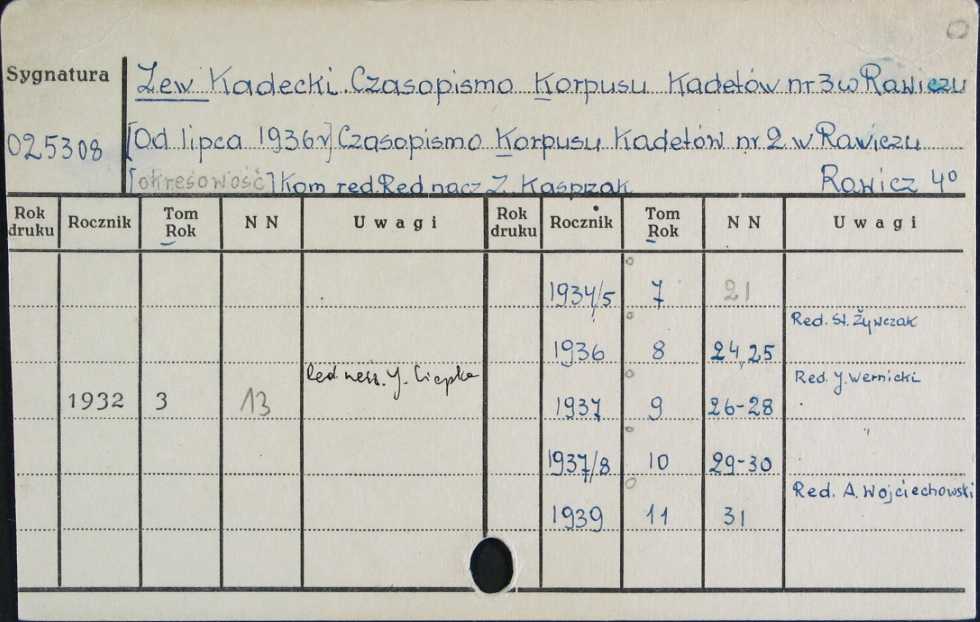 Sygnatura
Zew Kadecki. Czasopismo Korpusu Kadetów nr 3 w Rawiczu
025308
[Od lipca 1936 r] Czasopismo Korpusu Kadetów nr 2 w Rawiczu
[okresowość] Kom red. Red nacz Z. Kasprzak Rawicz 4°
Rok druku Rocznik Tom Rok N N Uwagi Rok druku Rocznik Tom Rok N N Uwagi
1934/5 7 21
Red. St. Żywczak
1936 8 24, 25
Red. J. Wernicki
1932 3 13 Red J. 1937 9 26-28
1937/8 10 29-30
Red. A. Wojciechowski
1939 11 31